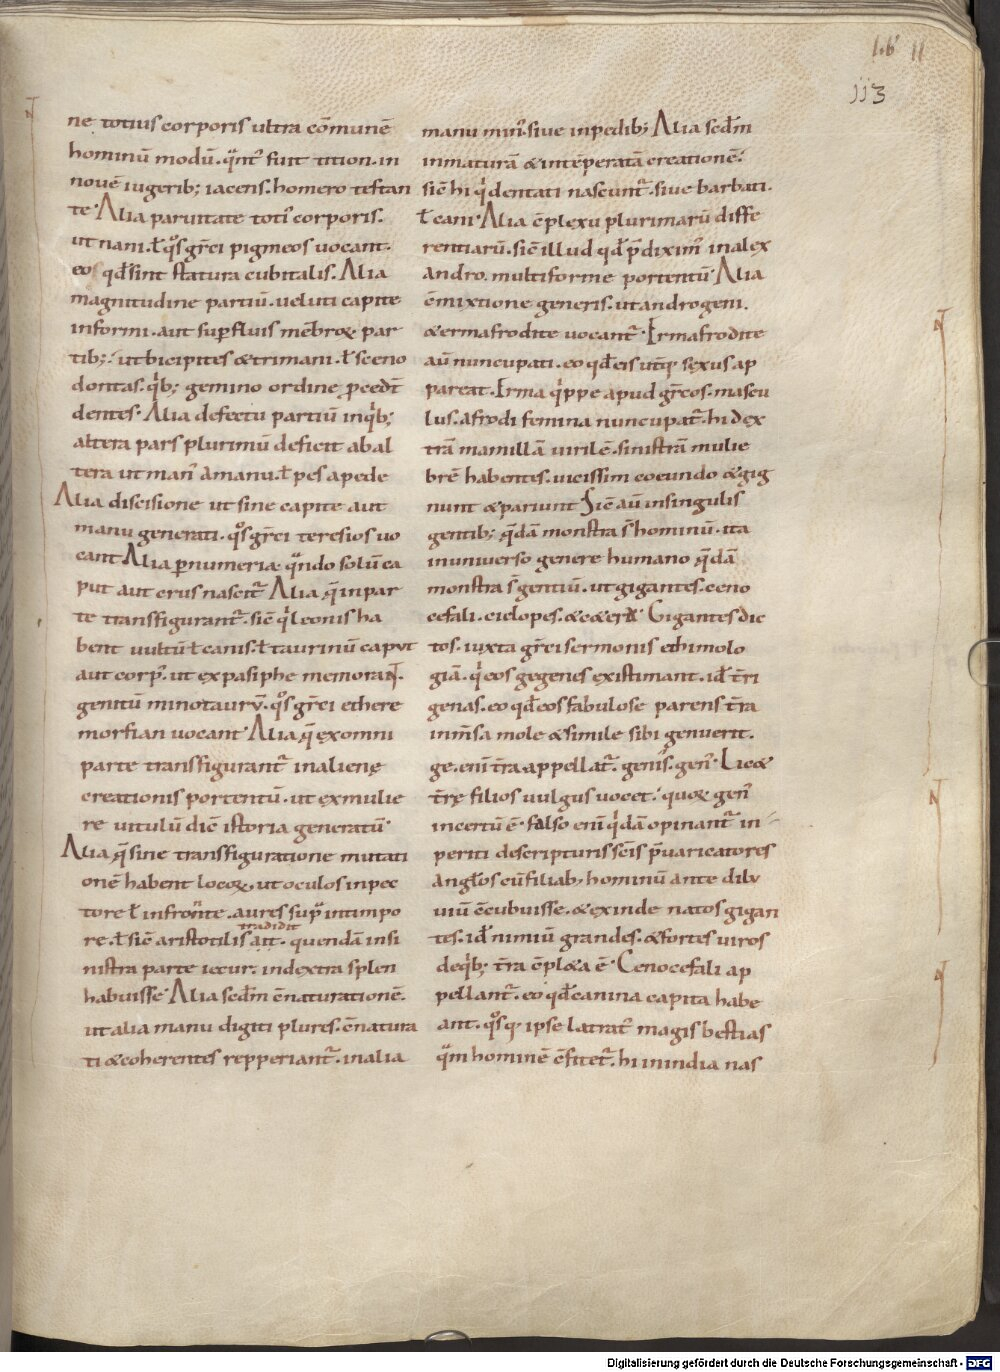 Lib 11
113
ne totius corporis ultra cōmunē
hominū modū. qͣntꝰ fuit tition. in
novē iugerib; iacens. homero testan
te. Alia paruitate totiꝰ corporis.
ut nani. ł qͦs grēci pigmeos uocant.
eo qđ sint statura cubitalis. Alia
magnitudine partiū. ueluti capite
informi. aut sup̄fluis mēbroꝝ par
tib;. ut bicipites & trimani. ł sceno
dontas. qͥb; gemino ordine p̄cedt̄
dentes. Alia defectu partiū inqͥb;
altera pars plurimū deficit ab al
tera ut manꝰ amanu. ł pes apede
Alia discisione ut sine capite aut
manu generati. qͦs grēci teresios uo
cant Alia p̱numeria qͣndo solū ca
put aut crus nascitᷣ Alia q̄ inpar
te transfigurantᷣ. sic̄ qͥ leonis ha
bent uultū ł canis. ł taurinū caput
aut corpꝰ. ut ex pasiphe memoraNT.
genitū minotaurū. qͦs grēci ethere
morfian uocant. Alia q̄ ex omni
parte transfigurantᷣ in alienę
creationis portentū. ut ex mulie
re uitulū dic̄ istoria generatū.
Alia q̄ sine transfiguratione mutati
onē habent locoꝝ. ut oculos in pec
tore ł in fronte. aures sup̄ in timpo
tradidit
re. ł sic̄ aristotilis ait. quendā in si
nistra parte iecur. in dextra splen
habuisse. Alia scđm c̄naturationē.
ut alia manu digiti plures. c̄natura
ti & coherentes repperiantᷣ. in alia
manu minꝰ. siue in pedib; Alia scđm
inmaturā & intēperatā creationē.
sic̄ hi qͥ dentati nascuntᷣ. siue barbati.
ł cani. Alia c̄plexu plurimarū diffe
rentiarū. sic̄ illud qđ p̄diximꝰ in alex
andro. multiforme portentū. Alia
c̄mixtione generis. ut androgeni.
& ermafrodite uocantᷣ. Ermafrodite
aū nuncupati. eo qđ eis utq̄ sexus ap
pareat. Erma qͥppe apud grēcos. mascu
lus. afrodi femina nuncupatᷣ. hi dex
trā mamillā virilē. sinistrā mulie
brē habentes. uicissim coeundo & gig
nunt & pariunt Sic̄ aū in singulis
gentib; q̄dā monstra s̄ hominū. ita
in uniuerso genere humano q̄dā
monstra s̄ gentiū. ut gigantes. ceno
cefali. ciclopes. & c&era Gigantes dic
tos. iuxta grēci sermonis ethimolo
giā. qͥ eos gegenes existimant. id̄ t̄ri
genas. eo qđ eos fabulose parens t̄ra
inm̄sa mole & simile sibi genuerit.
ge. eni t̄ra appellatᷣ. genꝰs. genꝰ. Lic&
t̄rę filios uulgus uocet. quoꝝ genꝰ
incertū ē. falso eni qͥdā opinantᷣ in
periti de scripturis sc̄is p̄uaricatores
angl̄os cū filiab; hominū ante dilu
uiū c̄cubuisse. & exinde natos gigan
tes. id̄ nimiū grandes. & fortes uiros
de qͥb; t̄ra c̄pl&a ē. Cenocefali ap
pellantᷣ. eo qđ canina capita habe
ant. qͦsq̄ ipse latratꝰ magis bestias
qͣm hominē c̄fitetᷣ. hi in india nas
Digitalisierung gefördert durch die Deutsche Forschungsgemeinschaft - DFG